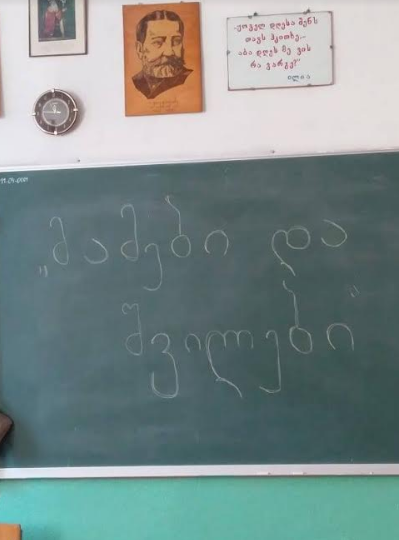 „ყოველ დღესა შენს
თავს ჰკითხე...
აბა დღეს მე ვის
რა ვარგე?"
ილია
„მამები და
შვილები"